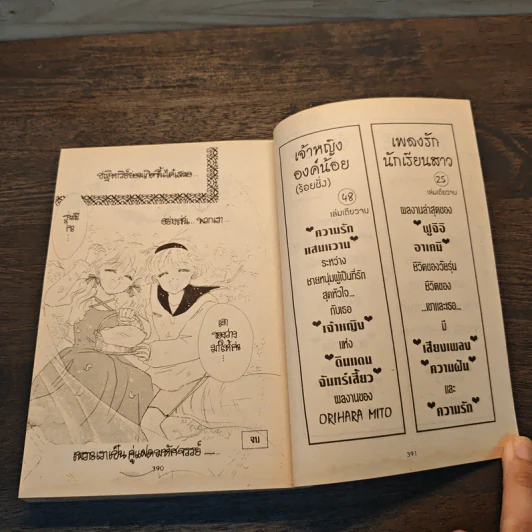 อย่างเช่น... พวกเรา
จบ
390
เจ้าหญิง
องค์น้อย
(ร้อยชั่ง)
48
เล่มเดียวจบ
"ความรัก
แสนหวาน"
ระหว่าง
ชายหนุ่มผู้เป็นที่รัก
สุดหัวใจ...
กับเธอ
"เจ้าหญิง"
แห่ง
"ดินแดน
จันทร์เสี้ยว"
ผลงานของ
ORIHARA MITO
เพลงรัก
นักเรียนสาว
25
เล่มเดียวจบ
ผลงานล่าสุดของ
"ฟูจิอิ
อาเคมิ"
ชีวิตของวัยรุ่น
ชีวิตของ
...เขาและเธอ...
มี
"เสียงเพลง"
"ความฝัน"
และ
"ความรัก"
391